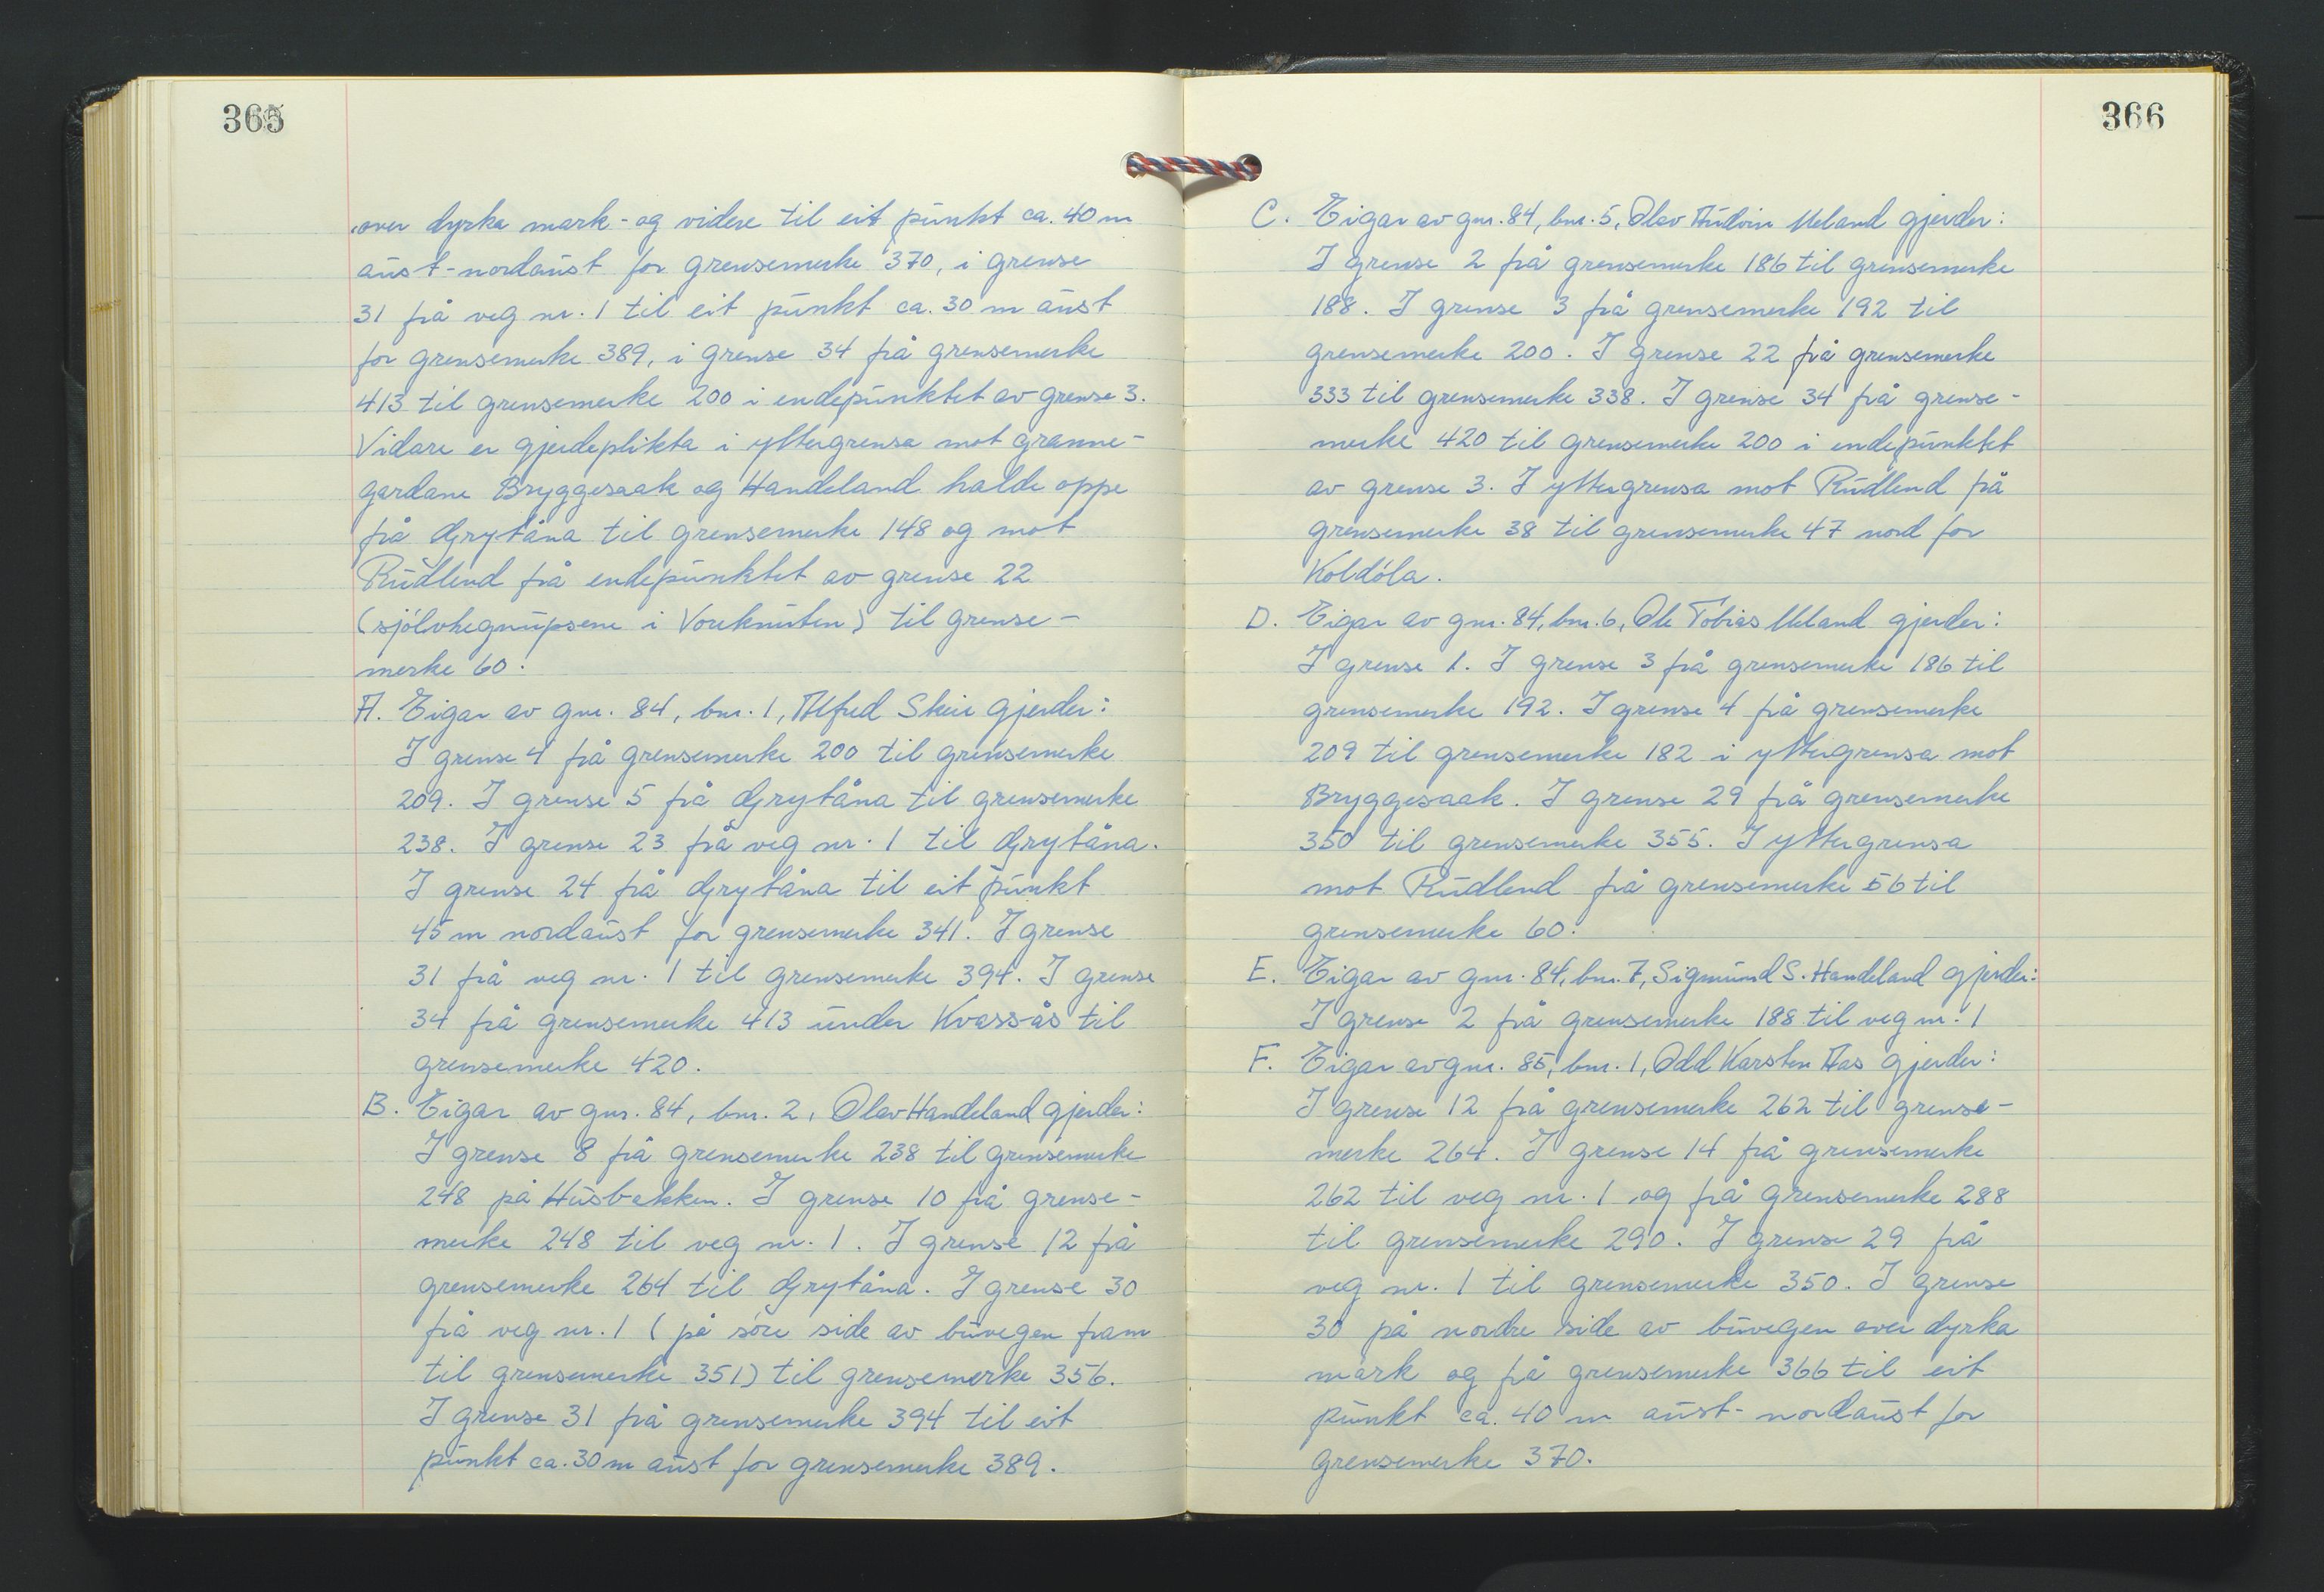 365
over dyrka mark - og videre til eit punkt ca. 40 m
aust-nordaust for grensemerke 370, i grense
31 frå veg nr. 1 til eit punkt ca. 30 m aust
for grensemerke 389, i grense 34 frå grensemerke
413 til grensemerke 200 i endepunktet av grense 3.
Vidare er gjerdeplikta i yttergrensa mot granne-
gardane Bryggesaak og Handeland halde oppe
frå Grytåna til grensemerke 148 og mot
Rudlend frå endepunktet av grense 22
(sjölvhegnupsene i Voreknuten) til grense-
merke 60.
A. Eigar av gnr. 84, bnr. 1, Alfred Skeie gjerder:
I grense 4 frå grensemerke 200 til grensemerke
209. I grense 5 frå Grytåna til grensemerke
238. I grense 23 frå veg nr. 1 til Grytåna.
I grense 24 frå Grytåna til eit punkt
45 m nordaust for grensemerke 341. I grense
31 frå veg nr. 1 til grensemerke 394. I grense
34 frå grensemerke 413 under Kvassås til
grensemerke 420.
B. Eigar av gnr. 84, bnr. 2, Olav Handeland gjerder:
I grense 8 frå grensemerke 238 til grensemerke
248 på Husbakken. I grense 10 frå grense-
merke 248 til veg nr. 1. I grense 12 frå
grensemerke 264 til Grytåna. I grense 30
frå veg nr. 1 (på söre side av buvegen fram
til grensemerke 351) til grensemerke 356.
I grense 31 frå grensemerke 394 til eit
punkt ca. 30 m aust for grensemerke 389.
366
C. Eigar av gnr. 84, bnr. 5, Olav Audvin Ueland gjerder:
I grense 2 frå grensemerke 186 til grensemerke
188. I grense 3 frå grensemerke 192 til
grensemerke 200. I grense 22 frå grensemerke
333 til grensemerke 338. I grense 34 frå grense-
merke 420 til grensemerke 200 i endepunktet
av grense 3. I yttergrensa mot Rudlend frå
grensemerke 38 til grensemerke 47 nord for
Koldóla.
D. Eigar av gnr. 84, bnr. 6, Ole Tobias Ueland gjerder:
I grense 1. I grense 3 frå grensemerke 186 til
grensemerke 192. I grense 4 frå grensemerke
209 til grensemerke 182 i yttergrensa mot
Bryggesaak. I grense 29 frå grensemerke
350 til grensemerke 355. I yttergrensa
mot Rudlend frå grensemerke 56 til
grensemerke 60.
E. Eigar av gnr. 84, bnr. 7, Sigmund S. Handeland gjerder:
I grense 2 frå grensemerke 188 til veg nr. 1
F. Eigar av gnr. 85, bnr. 1, Odd Karsten Aas gjerder:
I grense 12 frå grensemerke 262 til grense-
merke 264. I grense 14 frå grensemerke
262 til veg nr. 1 og frå grensemerke 288
til grensemerke 290. I grense 29 frå
veg nr. 1 til grensemerke 350. I grense
30 på nordre side av buvegen over dyrka
mark og frå grensemerke 366 til eit
punkt ca. 40 m aust-nordaust for
grensemerke 370.